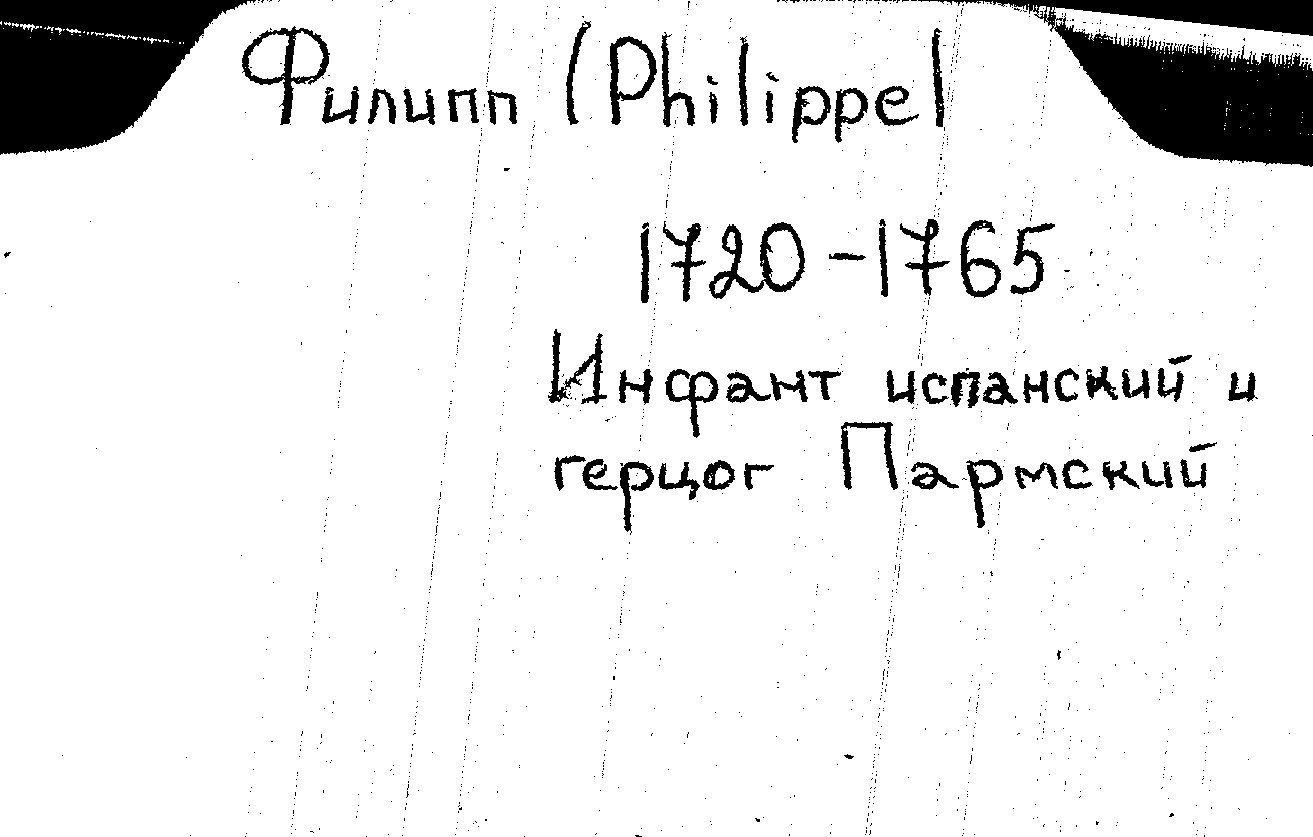 Филипп (Philippe)
1720-1765
Инфант испанский и
герцог Пармский